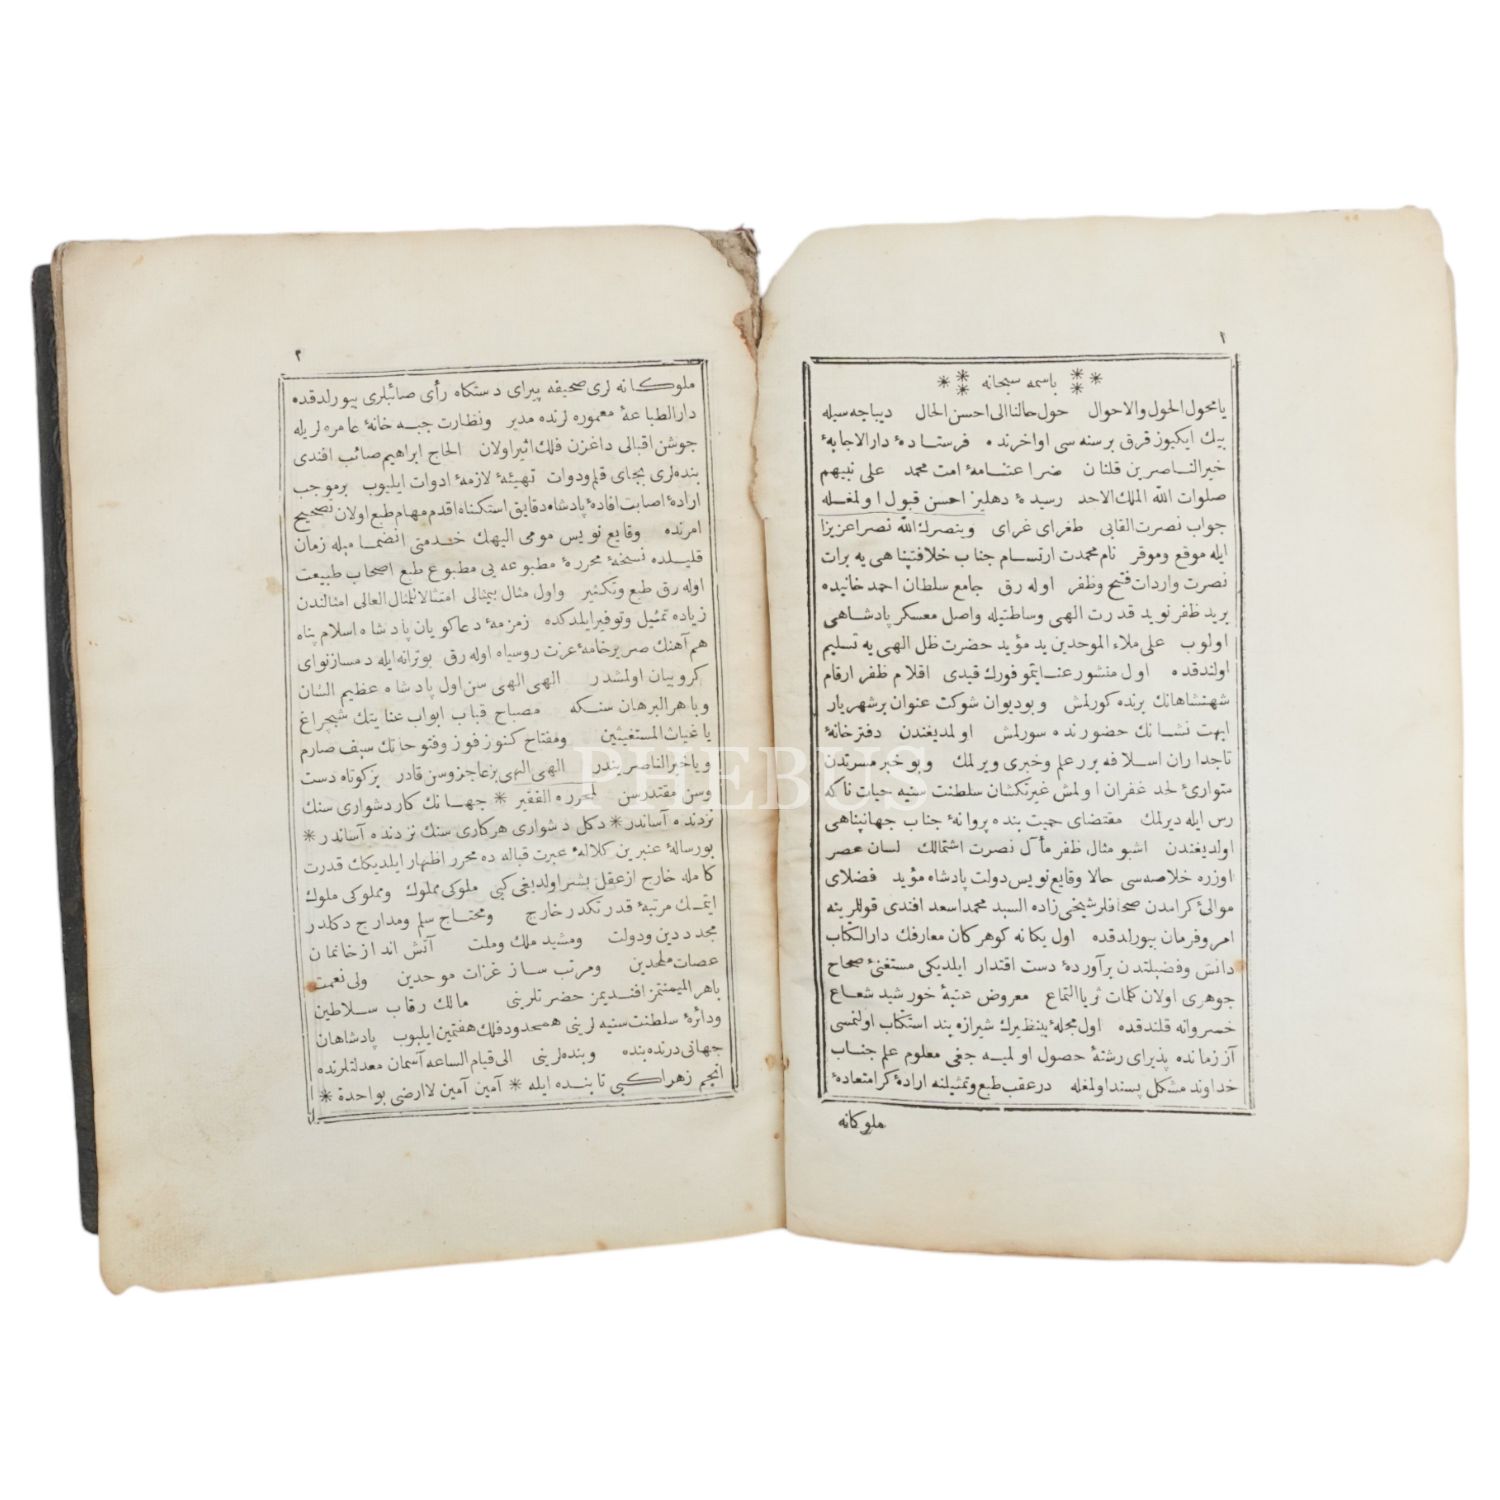 ١
باسمه سبحانه
يا محول الحول والاحوال حول حالنا الى احسن الحال ديباجه سيله
بيك ايكيوز قرق بر سنه سى اواخرنده فرستادۀ دارالاجابۀ
خير الناصرين قلنان ضراعتنامۀ امت محمد على نبيهم
صلوات الله الملك الاحد رسيدۀ دهليز احسن قبول اولمغله
جواب نصرت القابى طغراى غراى وينصرك الله نصرا عزيزا
ايله موقع وموقر نام محمدت ارتسام جناب خلافتپناهى يه برات
نصرت واردات فتح وظفر اوله رق جامع سلطان احمد خانيده
بريد ظفر نويد قدرت الهى وساطتيله واصل معسكر پادشاهى
اولوب على ملاء الموحدين يد مؤيد حضرت ظل الهى يه تسليم
اولندقده اول منشور عنايتموفورك قيدى اقلام ظفر ارقام
شهنشاهانك برنده كورلمش وبوديوان شوكت عنوان بر شهريار
ابهت نشانك حضورنده سورلمش اولمديغندن دفترخانۀ
تاجداران اسلافه برر علم وخبرى ويرلمك وبو خبر مسرتدن
متوارئ لحد غفران اولمش غيرتكشان سلطنت سنيه حيات ناكه
رس ايله ديرلمك مقتضاى حميت بنده پروانۀ جناب جهانپناهى
اولديغندن اشبو مثال ظفر مآل نصرت اشتمالك لسان عصر
اوزره خلاصه سى حالا وقايع نويس دولت پادشاه مؤيد فضلاى
موالئ كرامدن صحافلر شيخى زاده السيد محمد اسعد افندى قوللرينه
امر وفرمان بيورلدقده اول يكانه كوهركان معارفك دار الكتاب
دانش وفضيلتدن برآوردۀ دست اقتدار ايلديكى مستغنئ صحاح
جوهرى اولان كلمات ثريا التماع معروض عتبۀ خورشيد شعاع
خسروانه قلندقده اول مجلۀ بينظيرك شيرازه بند استكتاب اولنمسى
آز زمانده پذيراى رشتۀ حصول اولميه جغى معلوم علم جناب
خداوند مشكل پسند اولمغله در عقب طبع وتمثيلنه ارادۀ كرامتعادۀ
ملوكانه
٢
ملوكانه لرى صحيفه پيراى دستكاه رأى صائبلرى بيورلدقده
دار الطباعۀ معموره لرنده مدير ونظارت جبه خانۀ عامره لريله
جوشن اقبالى داغزن فلك اثير اولان الحاج ابراهيم صائب افندى
بنده لرى بجاى قلم ودوات تهيئۀ لازمۀ ادوات ايليوب بر موجب
ارادۀ اصابت افادۀ پادشاه دقايق استكناه اقدم مهام طبع اولان تصحيح
امرنده وقايع نويس مومى اليهك خدمتى انضماميله زمان
قليلده نسخۀ محررۀ مطبوعه يى مطبوع طبع اصحاب طبيعت
اوله رق طبع وتكثير واول مثال بيمثالى امتثالا للمثال العالى امثالندن
زياده تمثيل وتوفير ايلدكده زمزمۀ دعاكويان پادشاه اسلام پناه
هم آهنك صرير خامۀ عزت روسياه اوله رق بو ترانه ايله دمساز نواى
كروبيان اولمشدر الهى الهى سن اول پادشاه عظيم الشان
وباهر البرهان سنكه مصباح قباب ابواب عنايتك شبچراغ
يا غياث المستغيثين ومفتاح كنوز فوز وفتوحاتك سيف صارم
ويا خير الناصريندر الهى الهى بز عاجز وسن قادر بز كوتاه دست
وسن مقتدرسن لمحرره الفقير * جهانك كار دشوارى سنك
نزدنده آساندر * دكل دشوارى هر كارى سنك نزدنده آساندر *
بو رسالۀ عنبرين كلالۀ عبرت قباله ده محرر اظهار ايلديكك قدرت
كامله خارج از عقل بشر اولديغى كبى ملوكى مملوك ومملوكى ملوك
ايتمك مرتبۀ قدرتكدر خارج ومحتاج سلم ومدارج دكلدر
مجدد دين ودولت ومشيد ملك وملت آتش انداز خانمان
عصات ملحدين ومرتب ساز غزات موحدين ولى نعمت
باهر الميمنتمز افنديمز حضرتلرينى مالك رقاب سلاطين
ودائرۀ سلطنت سنيه لرينى همحدود فلك هفتمين ايليوب پادشاهان
جهانى درنده بنده وبنده لرينى الى قيام الساعه آسمان معدلتلرنده
انجم زهرا كبى تابنده ايله * آمين آمين لا ارضى بواحدة *
PHEBUS